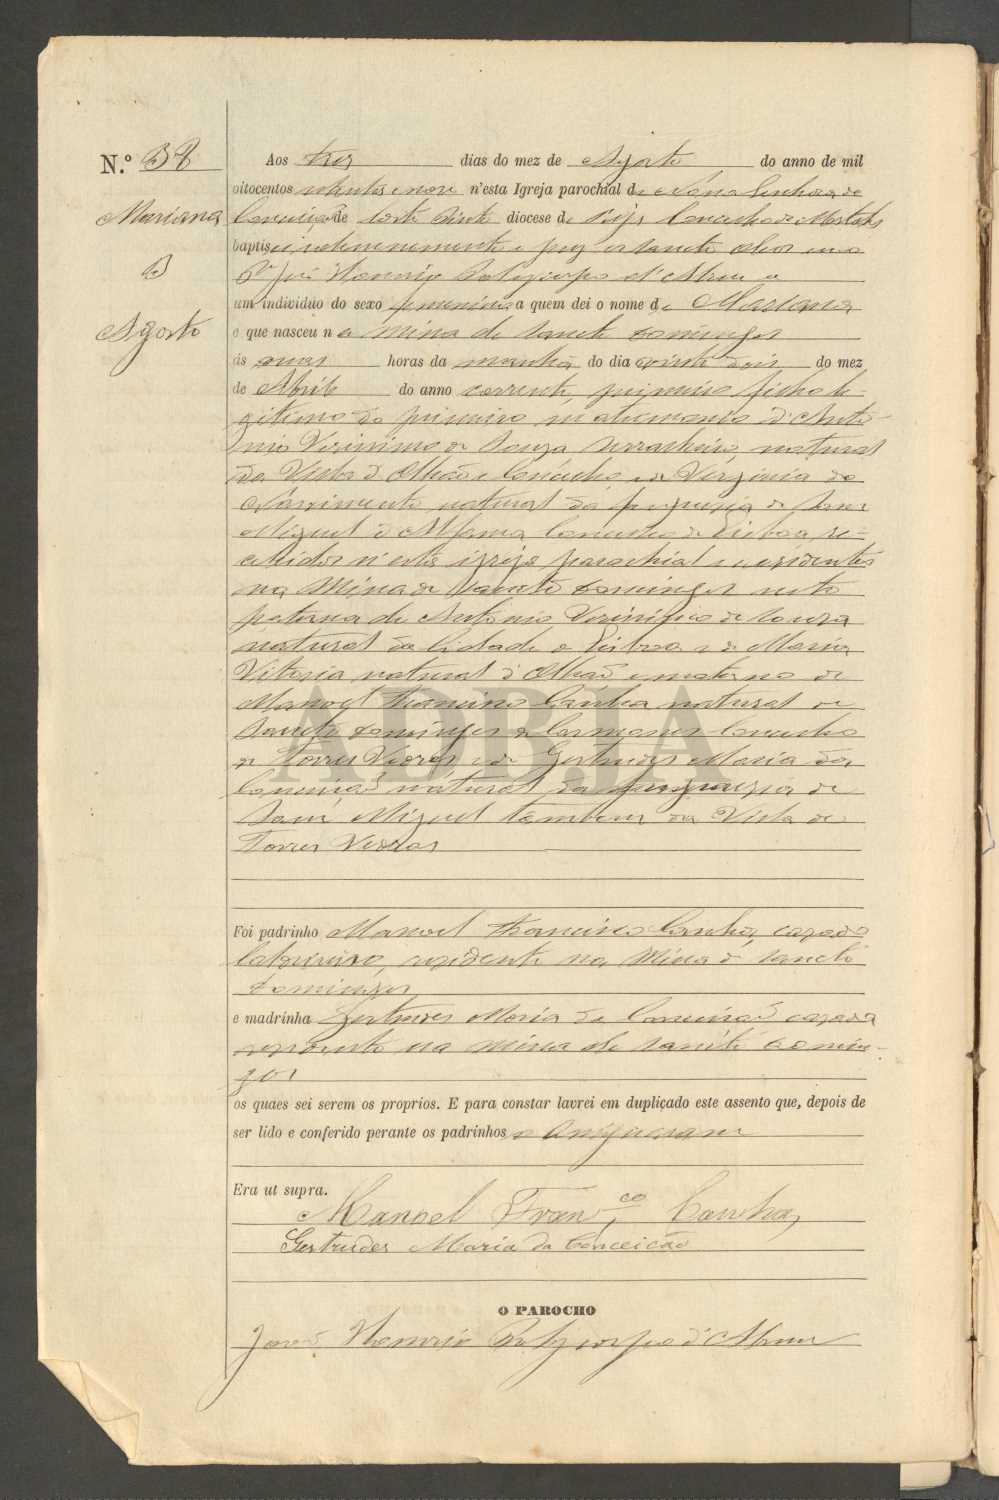 N.º 38
Aos tres dias do mez de Agosto do anno de mil
oitocentos oitenta e nove n'esta Igreja parochial de Nossa Senhora da
Mariana
Conceição de Corte Pinto diocese de Beja Concelho de Mertola
baptisei solemnemente e puz os sanctos oleos eu o
3
P.e José Honorio Polycarpo d'Abreu a
um individuo do sexo feminino a quem dei o nome de Mariana
Agosto
e que nasceu na Mina de Sancto Domingos
ás horas da manhã do dia vinte dois do mez
de Abril do anno corrente, primeiro filho le-
gitimo do primeiro matrimonio d'Anto-
nio Virissimo de Souza Serralheiro, natural
da Villa d'Olhão e Concelho e de Virginia do
Nascimento natural da freguezia de Sam
Miguel d'Alfama Concelho de Lisboa re-
cebidos n'esta igreja parochial e residentes
na Mina de Sancto Domingos neto
paterna de Antonio Virissimo de Souza
natural da Cidade de Lisboa e de Maria
Vitoria natural d'Olhão e materno de
Manoel Francisco Canha natural de
Sancto Domingos de Carmões Concelho
de Torres Vedras e de Gertrudes Maria da
Conceição natural da freguezia de
Sam Miguel tambem da Villa de
Torres Vedras
ADBJA
Foi padrinho Manoel Francisco Canha, cazado
residente na Mina de Sancto
Domingos
e madrinha Gertrudes Maria da Conceição cazada
residente na Mina de Sancto Domin-
gos
os quaes sei serem os proprios. E para constar lavrei em duplicado este assento que, depois de
ser lido e conferido perante os padrinhos o assignaram
Era ut supra.
Manoel Fran.co Canha
Gertrudes Maria da Conceicão
O PAROCHO
José Honorio Polycarpo d'Abreu